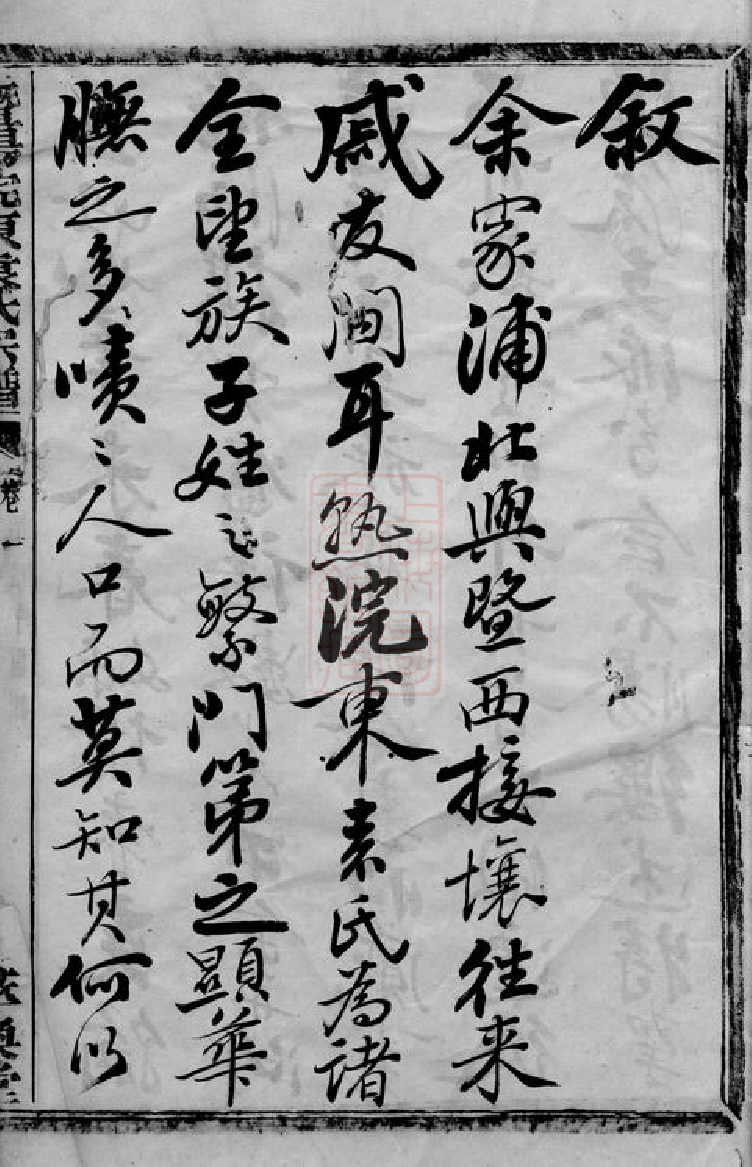 敘
余家浦北與暨西接壤徃来
戚友間耳熟浣東袁氏為諸
全望族子姓之繁門第之顯華
膴之多嘖〻人口而莫知其何以
暨陽浣東袁氏宗譜 卷一